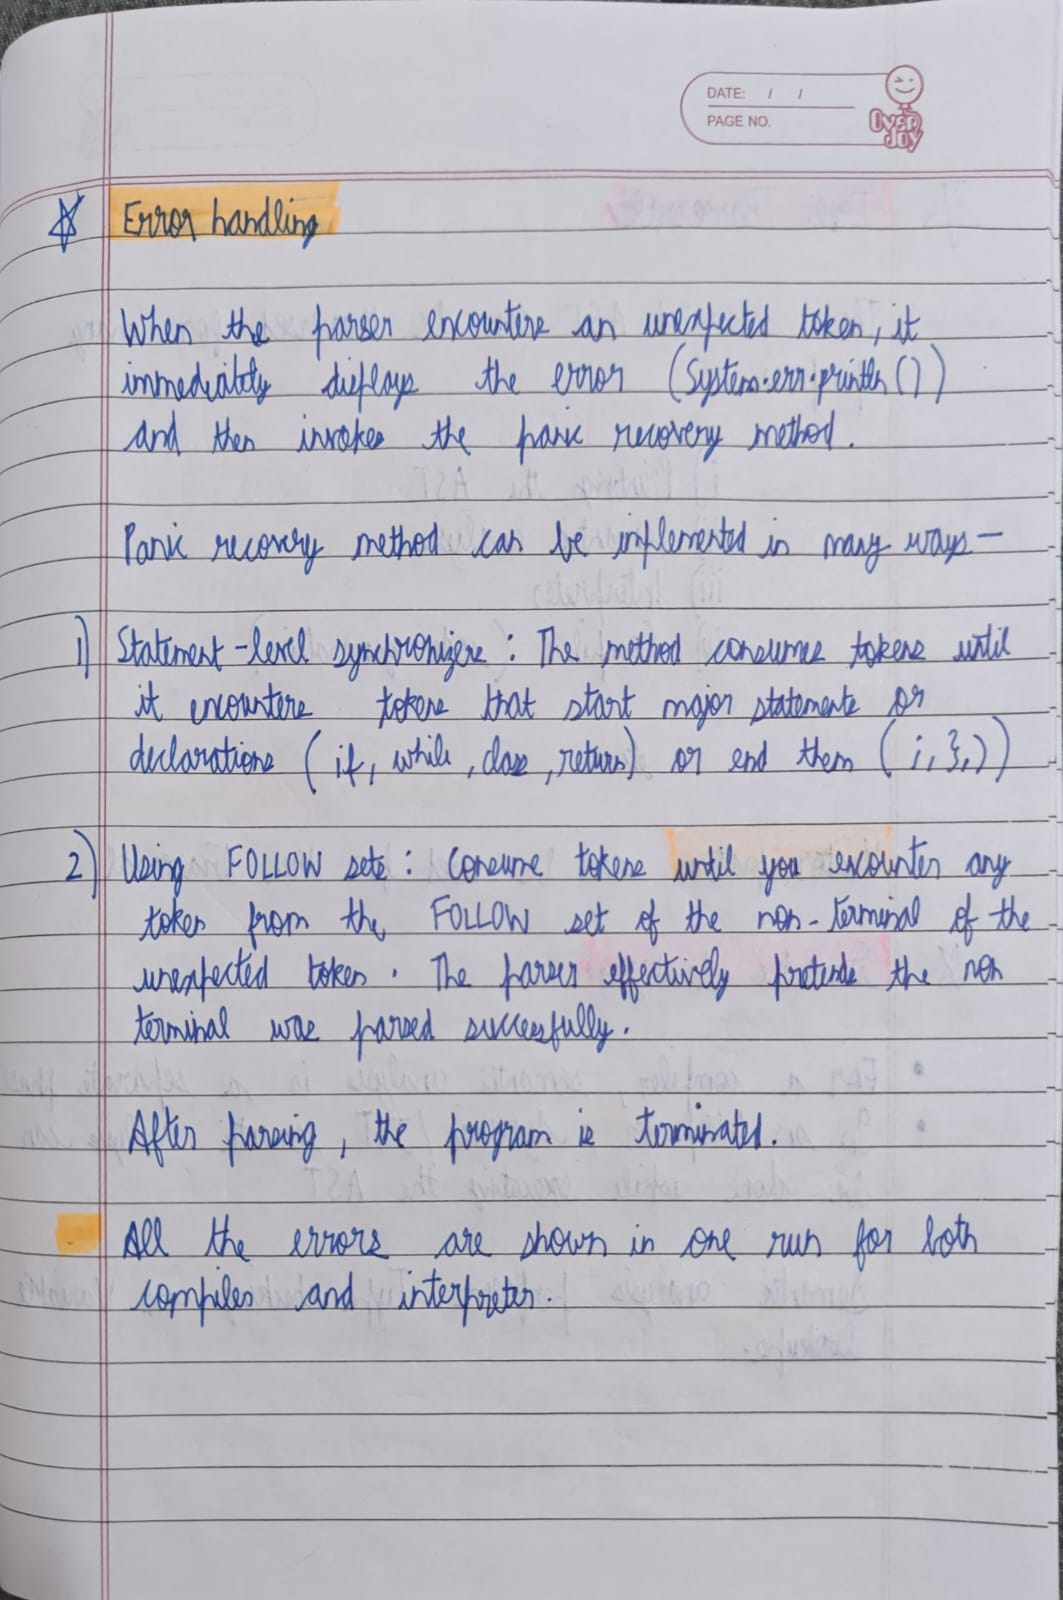 DATE: / /
PAGE NO.
Over Joy
Error handling
When the parser encounters an unexpected token, it
immediately displays the error (System.err.println())
and then invokes the panic recovery method.
Panic recovery method can be implemented in many ways-
1) Statement-level synchronizers: The method consumes tokens until
it encounters tokens that start major statements or
declarations (if, while, class, return) or end them (;,},))
2) Using FOLLOW sets: Consume tokens until you encounter any
token from the FOLLOW set of the non-terminal of the
unexpected token. The parser effectively pretends the non
terminal was parsed successfully.
After parsing, the program is terminated.
All the errors are shown in one run for both
compiler and interpreter.